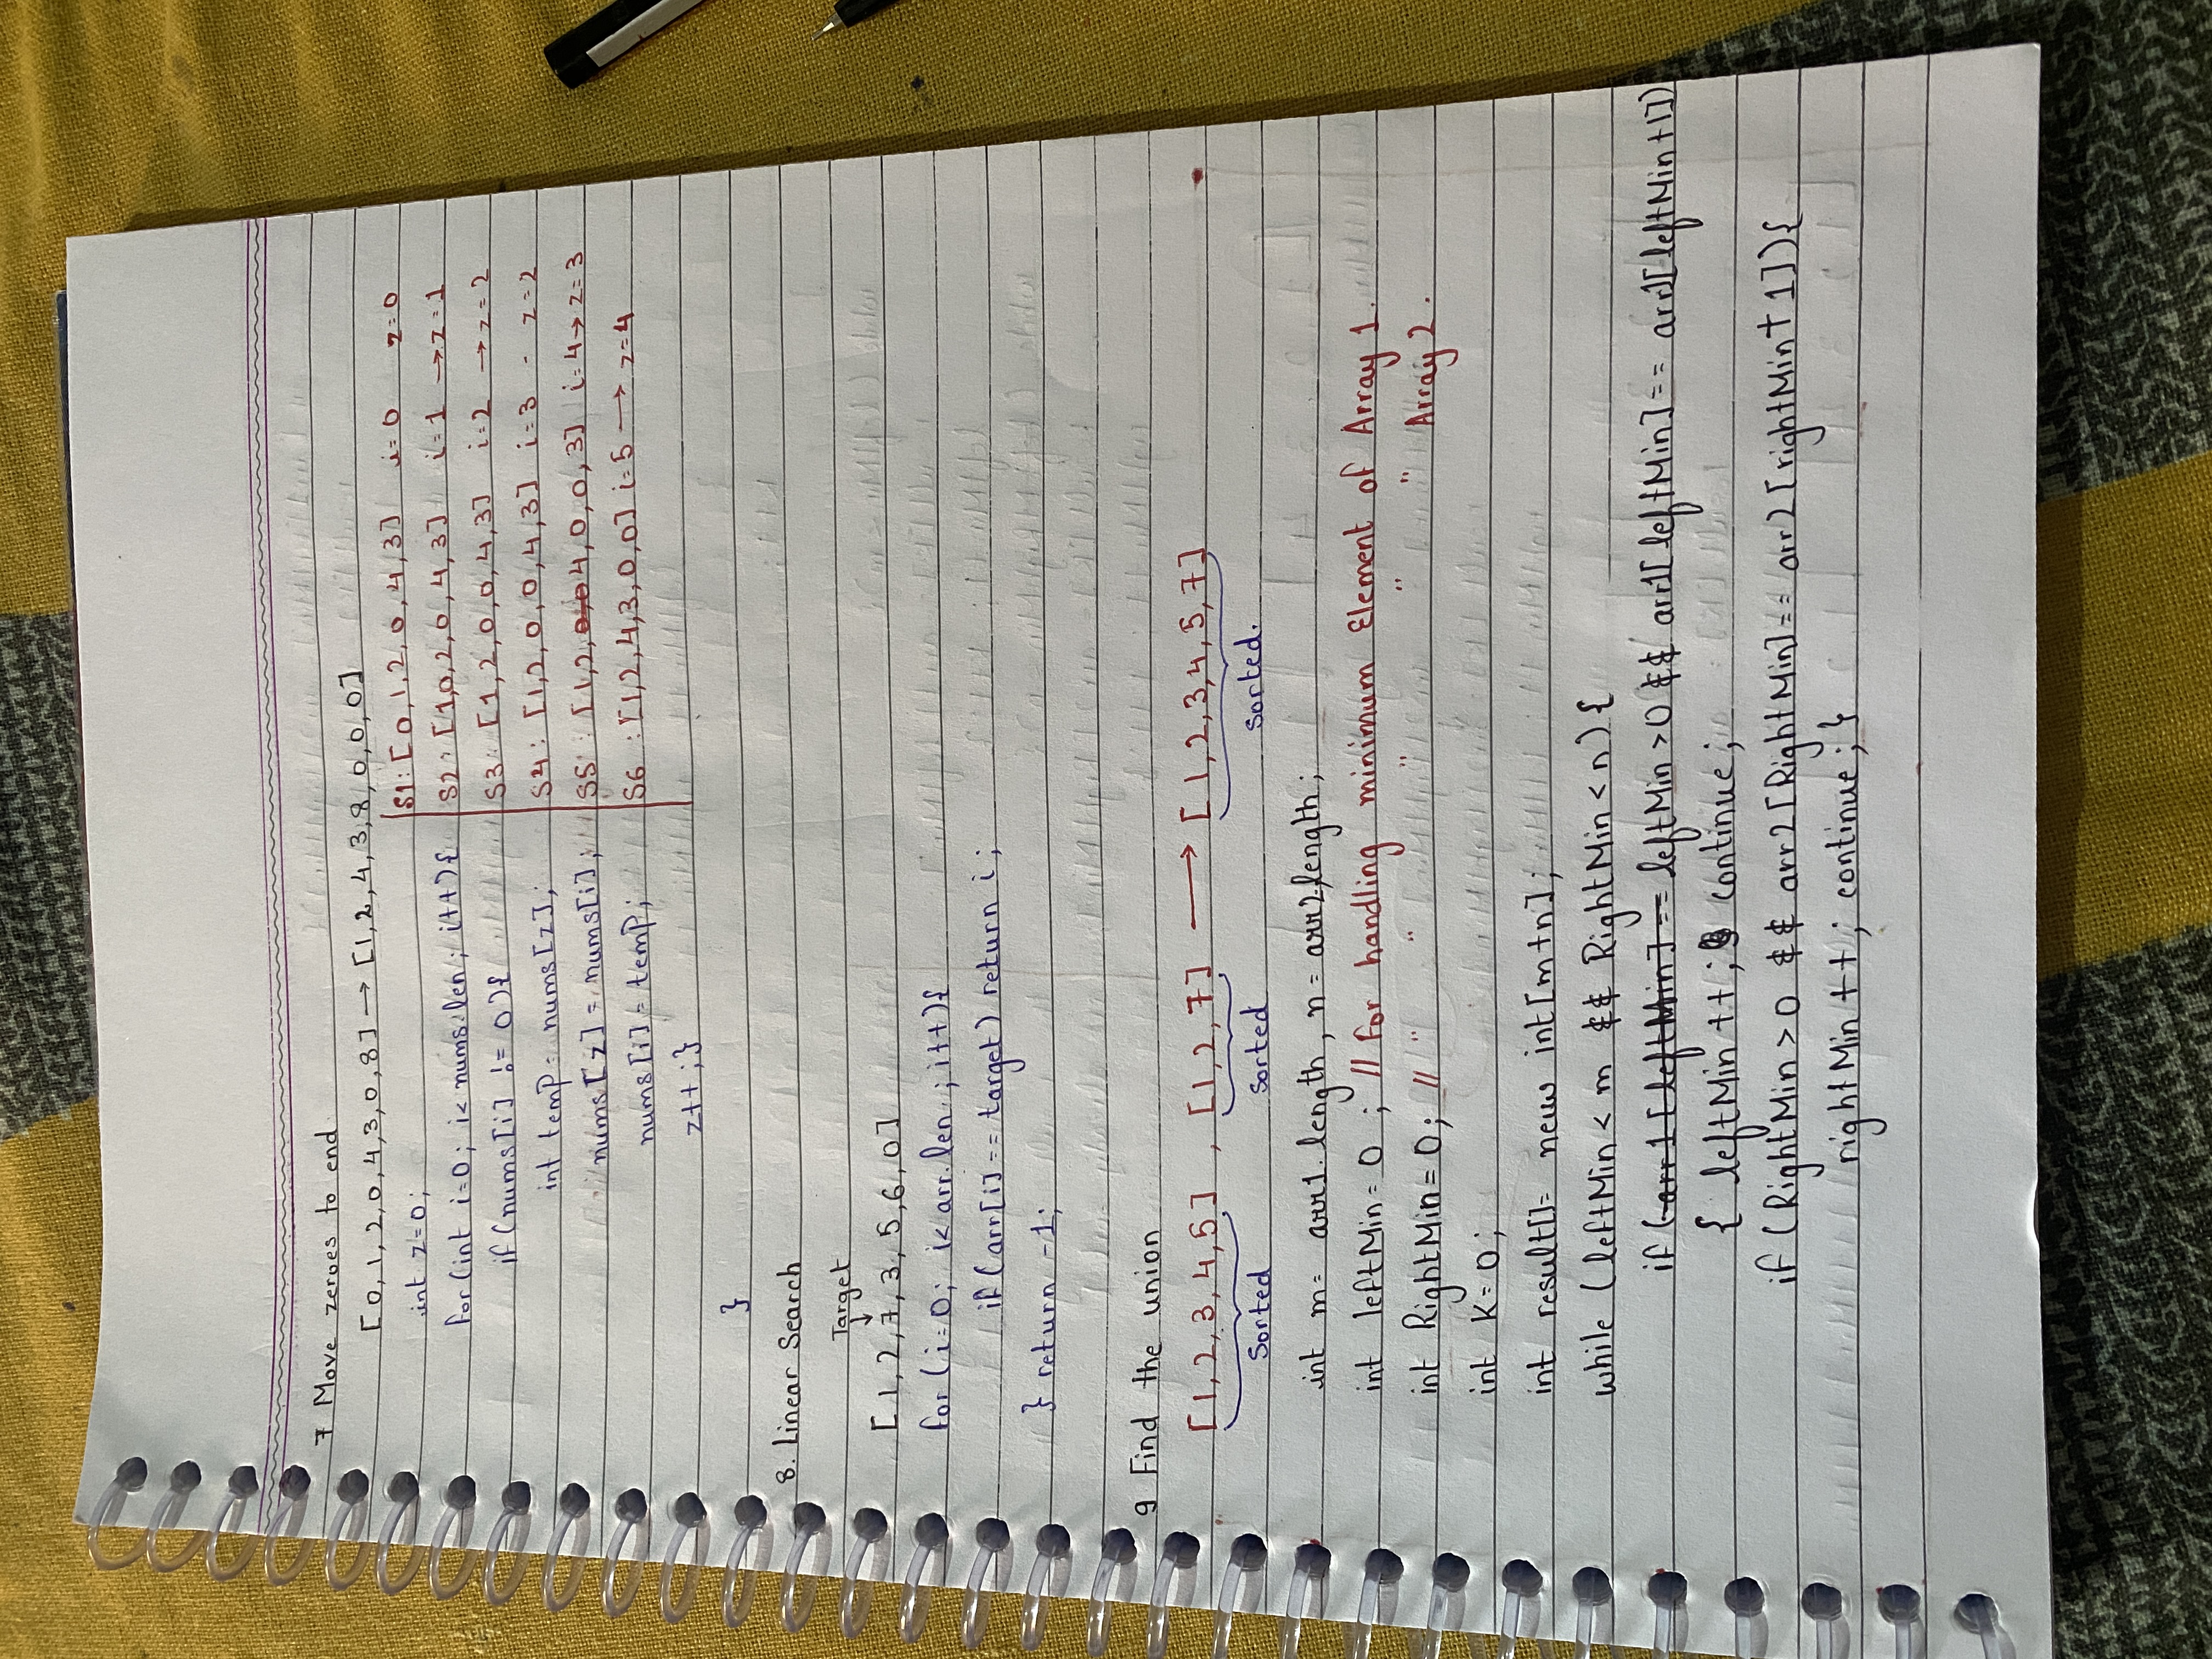 7 Move zeroes to end
[0,1,2,0,4,3,0,8] → [1,2,4,3,8,0,0,0]
int z=0;
for(int i=0; i< nums.len; i++){
if(nums[i] != 0){
int temp= nums[z];
nums[z] = nums[i];
nums[i] = temp;
z++;}
}
S1: [0,1,2,0,4,3] i=0 z=0
S2: [1,0,2,0,4,3] i=1 → z=1
S3: [1,2,0,0,4,3] i=2 → z=2
S4: [1,2,0,0,4,3] i=3 - z=2
S5: [1,2,0,0 4,0,0,3] i=4→ z=3
S6: [1,2,4,3,0,0] i=5 → z=4
8. Linear Search
Target
↓
[1,2,7,3,5,6,0]
for (i=0; i< arr.len.; i++){
if(arr[i]== target) return i;
} return -1;
9 Find the union
[1,2,3,4,5] , [1,2,7] → [1,2,3,4,5,7]
Sorted Sorted Sorted.
int m= arr1.length, n= arr2.length;
int leftMin=0; // for handling minimum Element of Array 1.
int RightMin=0; // " " " " " Array 2.
int K=0;
int result[]= new int[m+n];
while (leftMin< m && RightMin<n){
if (arr1[leftMin] == leftMin>0 && arr1[leftMin]== arr1[leftMin+1])
{ leftMin++; continue;
if (RightMin>0 && arr2[RightMin]== arr2[rightMin+1]){
rightMin++; continue;}